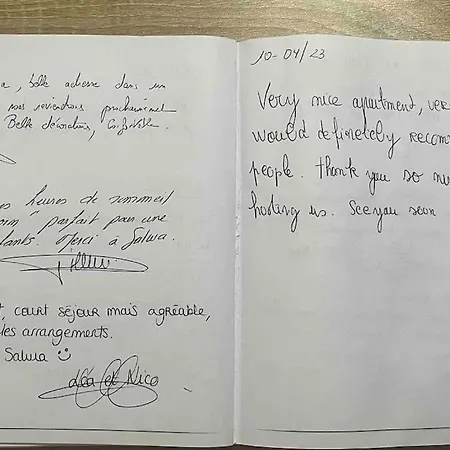 , Belle adresse dans un
nous reviendrons prochainement
Belle décoration,
heures de sommeil
parfait pour une
Merci à Salwa.
, court séjour mais agréable,
les arrangements.
Salwa
Léa et Nico
10-04/23
Very nice apartment, ver
would definetely recom
people. thank you so mu
hosting us. See you soon